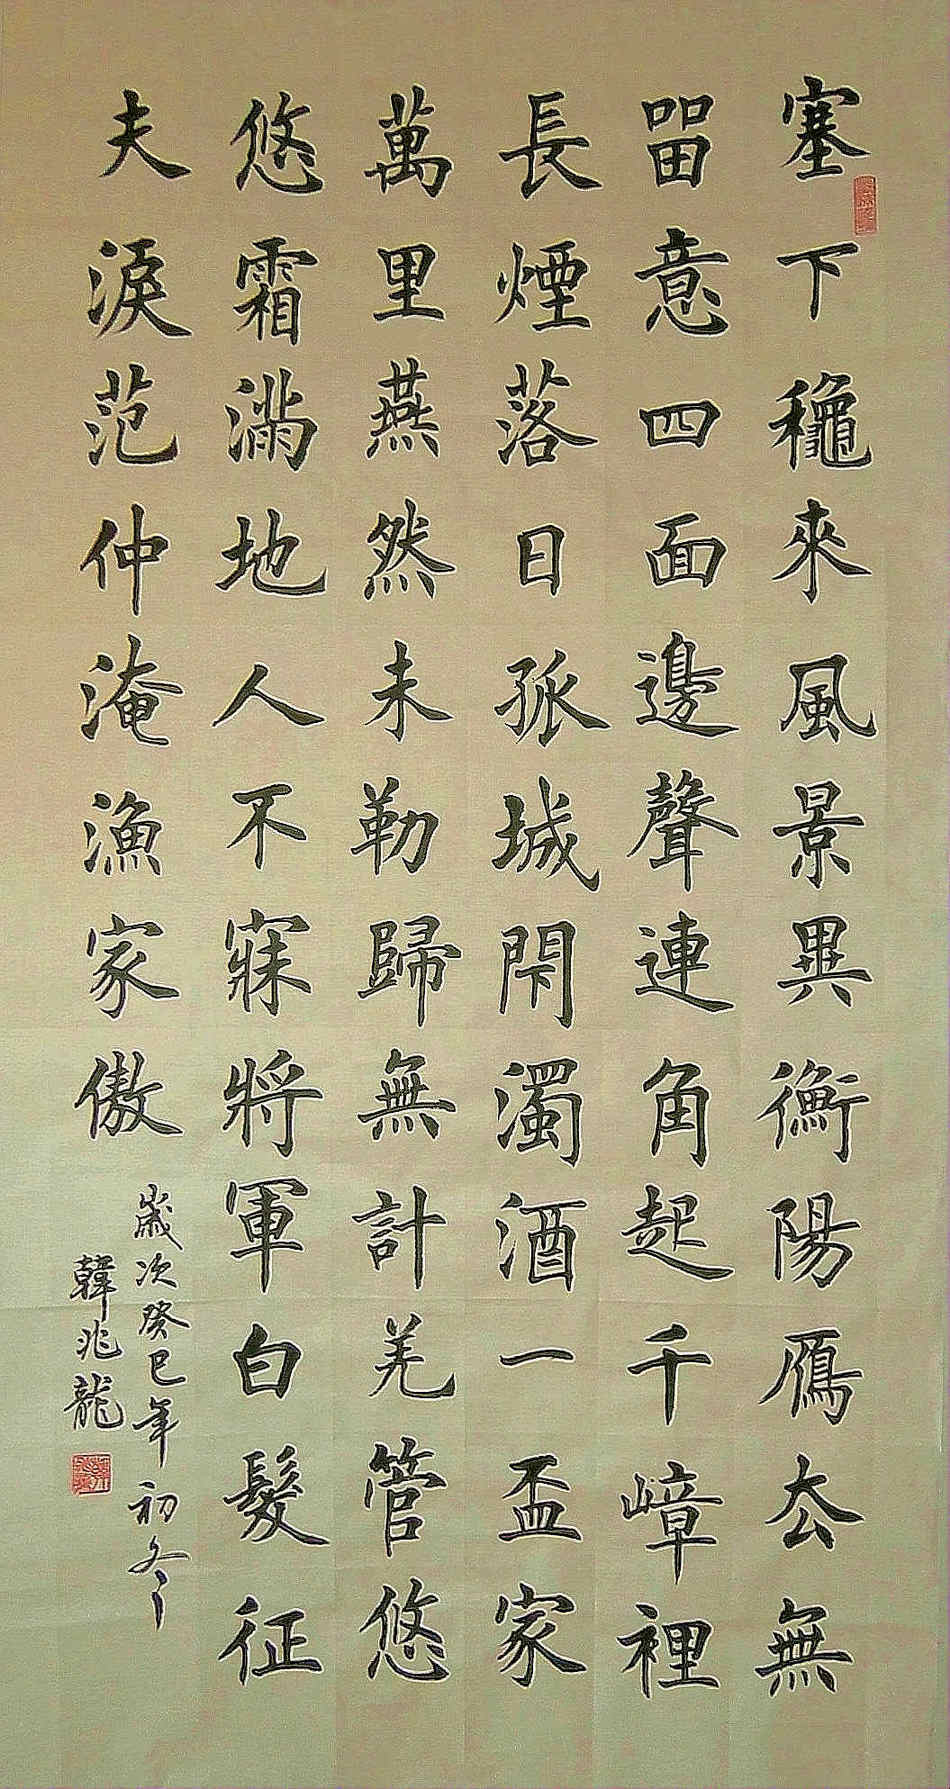 塞下穐來風景異衡陽鴈厺無
㽞意四面邊聲連角起千嶂裡
長煙落日孤城閇濁酒一盃家
萬里燕然未勒歸無計羌管悠
悠霜滿地人不寐將軍白髮征
夫淚范仲淹漁家傲
歲次癸巳年初冬
韓兆龍